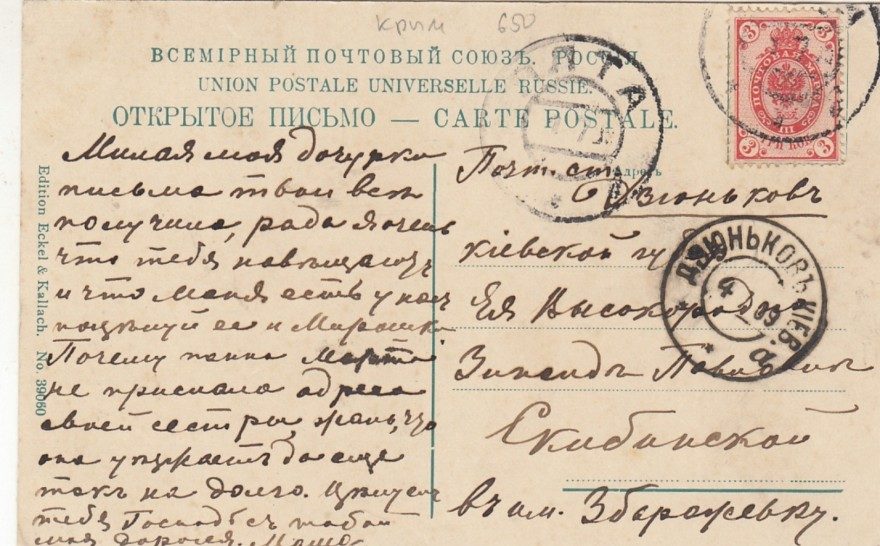 Крым 650
ВСЕМІРНЫЙ ПОЧТОВЫЙ СОЮЗЪ. РОССІЯ
UNION POSTALE UNIVERSELLE RUSSIE.
ОТКРЫТОЕ ПИСЬМО — CARTE POSTALE.
ЯЛТА
3 3
ПОЧТОВАЯ МАРКА
3 3
Edition Eckel & Kallach. No. 39060
Милая моя дочурка
письма твои всѣ
получила, рада я очень
что тебя навѣщаютъ
и что Маня есть у насъ
поцѣлуй ее и Мирошк
Почему панна Марта
не прислала адреса
своей сестры, жаль, что
она уѣзжаетъ да еще
такъ на долго. Цѣлую
тебя Господь съ тобой
моя дорогая. Мама
Адресъ
Почт. ст.
Дзюньковъ
Кіевской гу
Ея Высокородію
Зинаидѣ Павловнѣ
Скибинской
въ им. Збаржевку.
ДЗЮНЬКОВЪ КІЕВ.
4
09
а